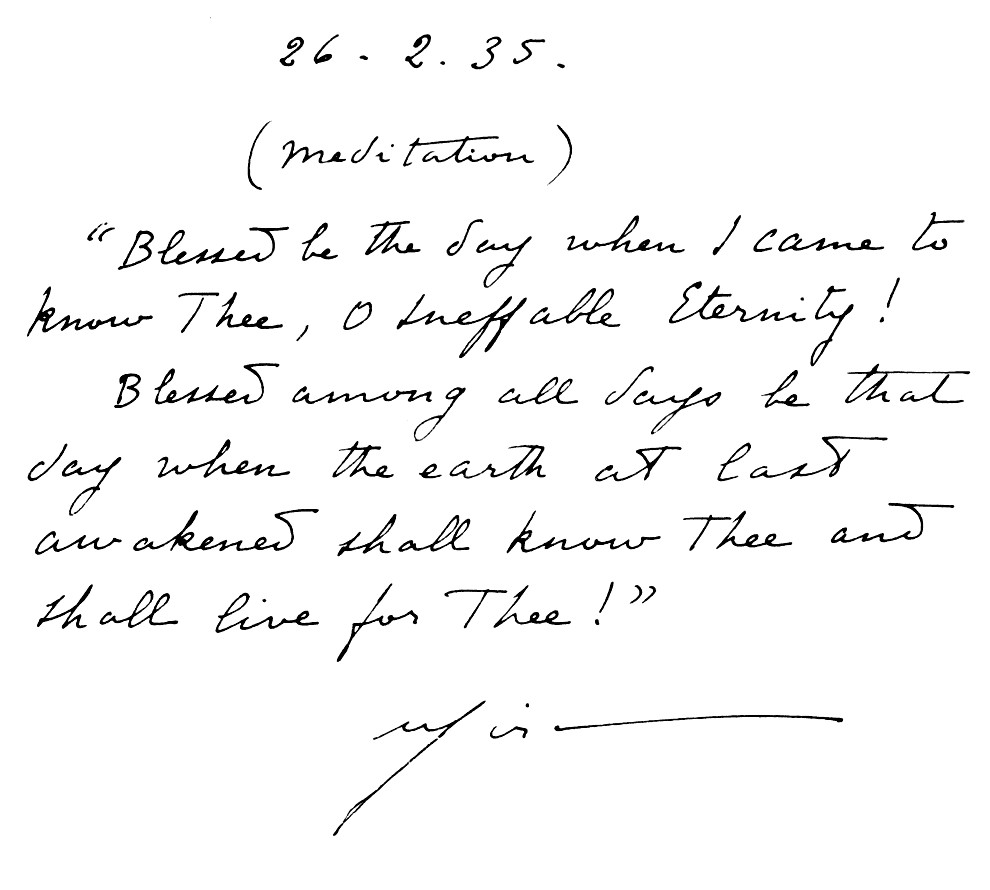 26 - 2. 35.
(meditation)
“Blessed be the day when I came to
know Thee, O Ineffable Eternity!
Blessed among all days be that
day when the earth at last
awakened shall know Thee and
shall live for Thee!”